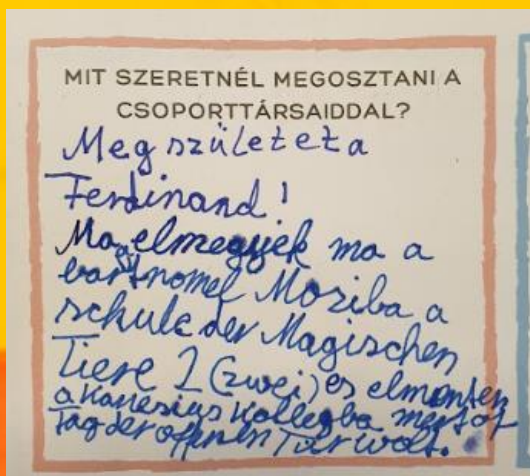 MIT SZERETNÉL MEGOSZTANI A
CSOPORTTÁRSAIDDAL?
Megszületeta
Ferdinand!
Ma elmegyek ma a
Moziba a
schule der Magischen
Tiere 2 (zwei) es elmenten
a kanesius kollegba mert ot
Tag der offenen Tür wolt.